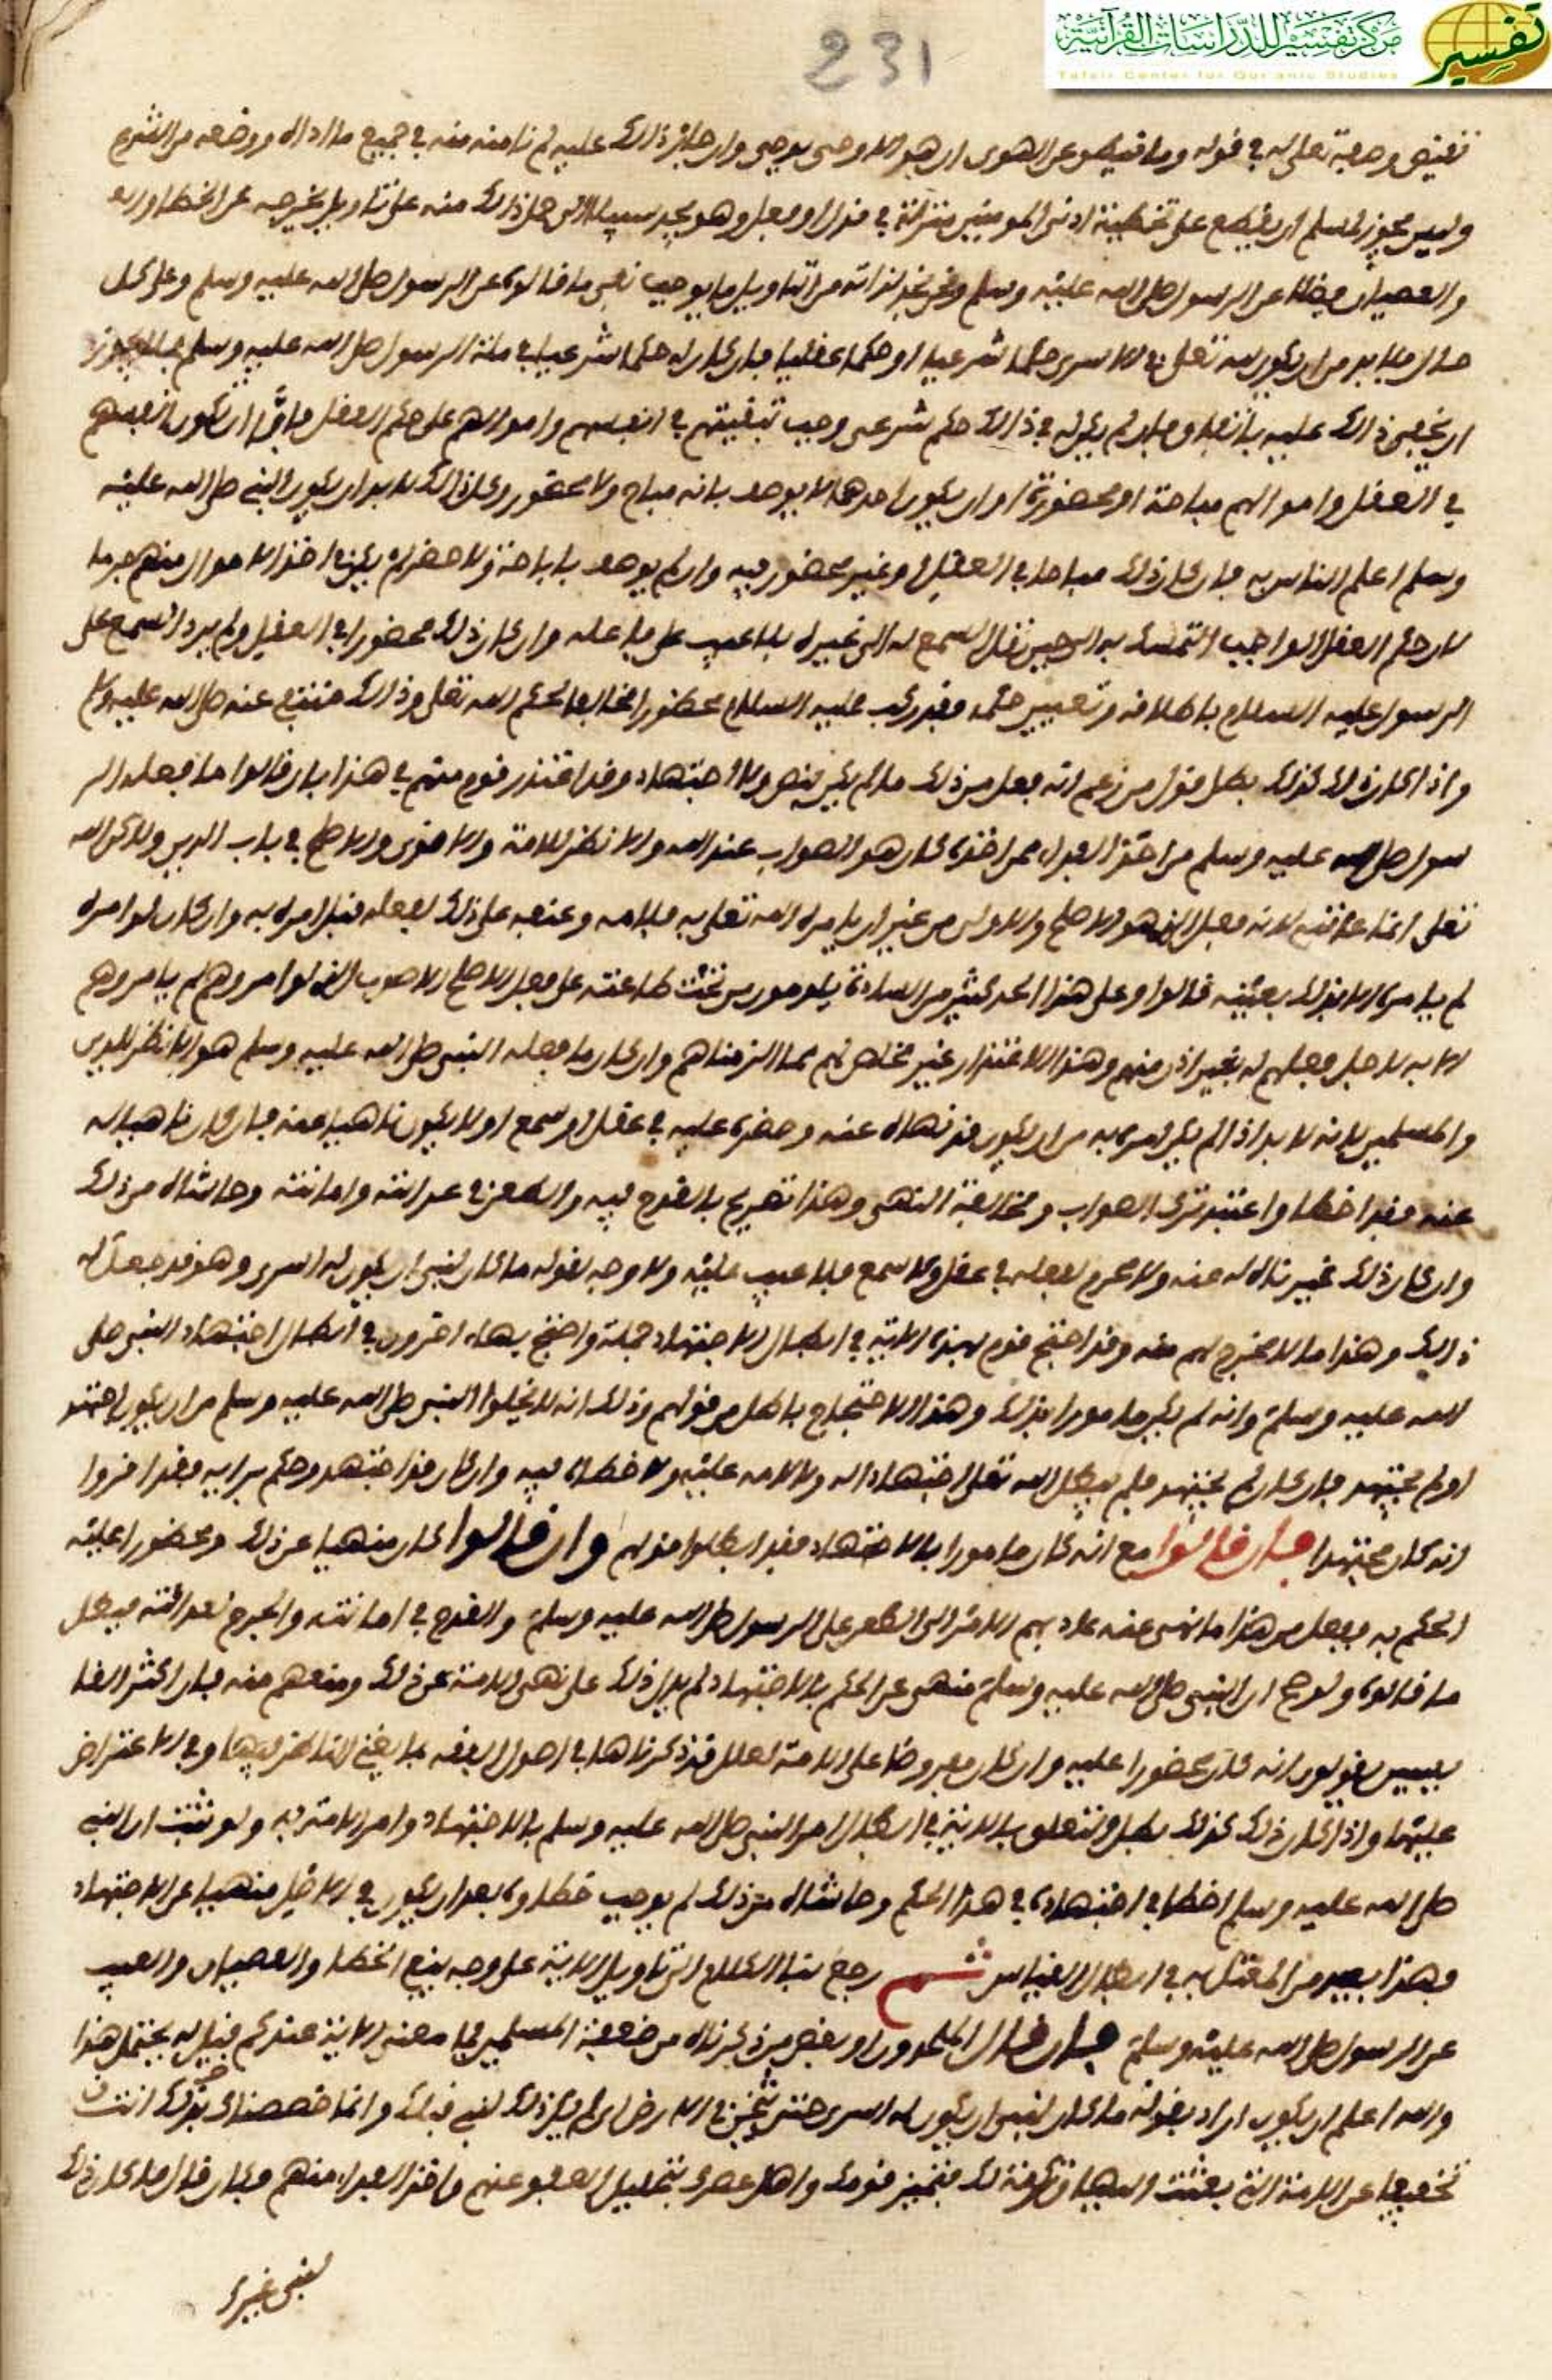 مركز تفسير للدراسات القرآنية
Tafsir Center for Qur'anic Studies
تفسير
231
نقيض وصفه تعلى له في قوله وما ينطق عن الهوى ان هو الا وحي يوحى وان جاز ذلك عليه لم نامنه منه في جميع ما اداه ووضعه من الشرع
وليس يجوز لمسلم ان يقطع على تخطية ادنى المومنين منزلة في قول او فعل وهو يجد سبيلا الى حمل ذلك منه على تاويل يخرجه عن الخطا
والعصيان فضلا عن الرسول صلى الله عليه وسلم ونحن نجد لذلك من التاويل ما يوجب نفي ما قالوه عن الرسول صلى الله عليه وسلم وعلى كل
حال فلا بد من ان يكون لله تعلى في الاسرى حكما شرعيا او حكما عقليا فان كان له حكما شرعيا في ملة الرسول صلى الله عليه وسلم فلا يجوز
ان يخفى ذلك عليه وان لم يكن له في ذلك حكم شرعي وجب تبقيتهم في انفسهم واموالهم على حكم العقل فاما ان تكون انفسهم
في العقل واموالهم مباحة او محضورة او ان يكون احدهما لا يوصف بانه مباح ولا محضور وكل ذلك لا بد ان يكون النبي صلى الله عليه
وسلم اعلم الناس به فان كان ذلك مباحا في العقل او غير محضور فيه وان لم يوصف باباحة ولا حضر لم يكن اخذ الاموال منهم جرما
لان حكم العقل الواجب التمسك به الى حين نقل السمع له الى غيره فلا عيب على فاعله وان كان ذلك محضورا في العقل ولم يرد السمع على
الرسول عليه السلام باطلاقه وتغيير حكمه فقد ركب عليه السلام محظورا مخالفا لحكم الله تعلى وذلك منتف عنه صلى الله عليه وسلم
واذا كان ذلك كذلك بطل قول من زعم انه فعل من ذلك ما لم يكن بنص ولا اجتهاد وقد اعتذر قوم منهم في هذا بان قالوا ما فعله الر
سول صلى الله عليه وسلم من اخذ الفداء ممن اخذه كان هو الصواب عند الله والانظر للامة والاقوى والاصلح في باب الدين ولاكن الله
تعلى انما عاتبه لانه فعل الذي هو الاصلح والاولى من غير ان يامره الله تعلى به فلامه وعنفه على ذلك لفعله قبل امره به وان كان لو امره
لم يامره الا بذلك بعينه قالوا وعلى هذا الحد كثير من السادة يلومون من تحت طاعته على فعل الاصلح الاصوب الذي لو امروهم لم يامروهم
الا به لاجل فعلهم له بغير اذن منهم وهذا الاعتذار غير مخلص لهم مما الزمناهم وان كان ما فعله النبي صلى الله عليه وسلم هو الانظر للدين
والمسلمين لانه لا بد اذا لم يكن امره به من ان يكون قد نهاه عنه وحضره عليه في عقل او سمع او لا يكون ناهيا عنه فان كان ناهيا له
عنه فقد اخطا واعتمد ترك الصواب ومخالفة النهي وهذا تصريح بالقدح فيه والطعن في عدالته وامانته وحاشاه من ذلك
وان كان ذلك غير ناه له عنه ولا محرم لفعله في عقل ولا سمع فلا عيب عليه ولا وجه لقوله ما كان لنبي ان يكون له اسرى وهو قد جعل له
ذلك وهذا ما لا مخرج لهم منه وقد احتج قوم بهذه الاية في ابطال الاجتهاد جملة واحتج بها اخرون في ابطال اجتهاد النبي صلى
الله عليه وسلم وانه لم يكن مامورا بذلك وهذا الاحتجاج باطل من قولهم وذلك انه لا يخلوا النبي صلى الله عليه وسلم من ان يكون اجتهد
او لم يجتهد فان كان لم يجتهد فلم يبطل الله تعلى اجتهادا له ولا لامه عليه ولا خطاه فيه وان كان قد اجتهد وحكم برايه فقد اقروا
انه كان مجتهدا فان قالوا مع انه كان مامورا بالاجتهاد فقد ابطلوا قولهم وان قالوا كان منهيا عن ذلك ومحضورا عليه
الحكم به ففعل من هذا ما نهي عنه عاد بهم الامر الى الطعن على الرسول صلى الله عليه وسلم والقدح في امانته والجرح لعدالته فبطل
ما قالوه ولو صح ان النبي صلى الله عليه وسلم منهى عن الحكم بالاجتهاد لم يدل ذلك على نهي الامة عن ذلك ومنعهم منه فان اكثر القا
يسين يقولون انه كان محضورا عليه وان كان مفروضا على الامة لعلل قد ذكرناها في اصول الفقه بما يغني الناظر فيها وفي الاعتراض
عليها واذا كان ذلك كذلك بطل التعلق بالاية في ابطال امر النبي صلى الله عليه وسلم بالاجتهاد وامر الامة به ولو ثبت ان النبي
صلى الله عليه وسلم اخطا في اجتهاده في هذا الحكم وحاشاه من ذلك لم يوجب خطاوه بعد ان يكون في الاصل منهيا عن الاجتهاد
وهذا بعيد من المعتل به في ابطال القياس ثم رجع بنا الكلام الى تاويل الاية على وجه ينفي الخطا والعصيان والعيب
عن الرسول صلى الله عليه وسلم فان قال الملحدون او بعض من ذكرناه من ضعفة المسلمين فما معنى الاية عندكم قيل له يحتمل هذا
والله اعلم ان يكون اراد بقوله ما كان لنبي ان يكون له اسرى حتى يثخن في الارض اي لم يكن ذلك لنبي قبلك وانما خصصناك بذلك انت
تخفيفا عن الامة التي بعثت اليها وتكرمة لك فتميز قومك واهل عصرك بتحليل العفو عنهم واخذ الفداء منهم وكان قال ما كان ذلك
لنبي غيرك